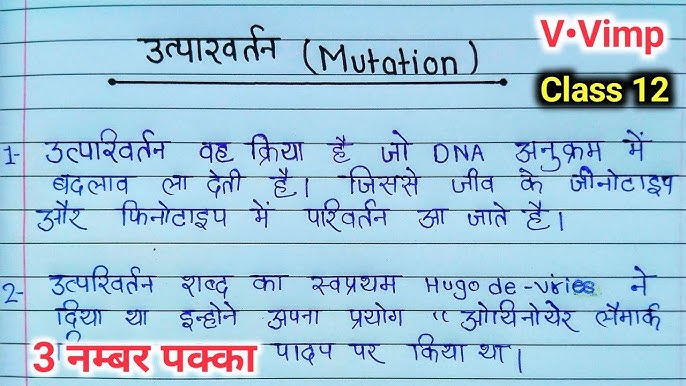 उत्पारवर्तन (Mutation)
V•Vimp
Class 12
1- उत्परिवर्तन वह क्रिया है जो DNA अनुक्रम में
बदलाव ला देती है। जिससे जीव के जीनोटाइप
और फिनोटाइप में परिवर्तन आ जाते है।
2- उत्परिवर्तन शब्द का स्वप्रथम Hugo de-vries ने
दिया था इन्होने अपना प्रयोग "ओथिनोथेर लैमार्क
3 नम्बर पक्का पादप पर किया था।